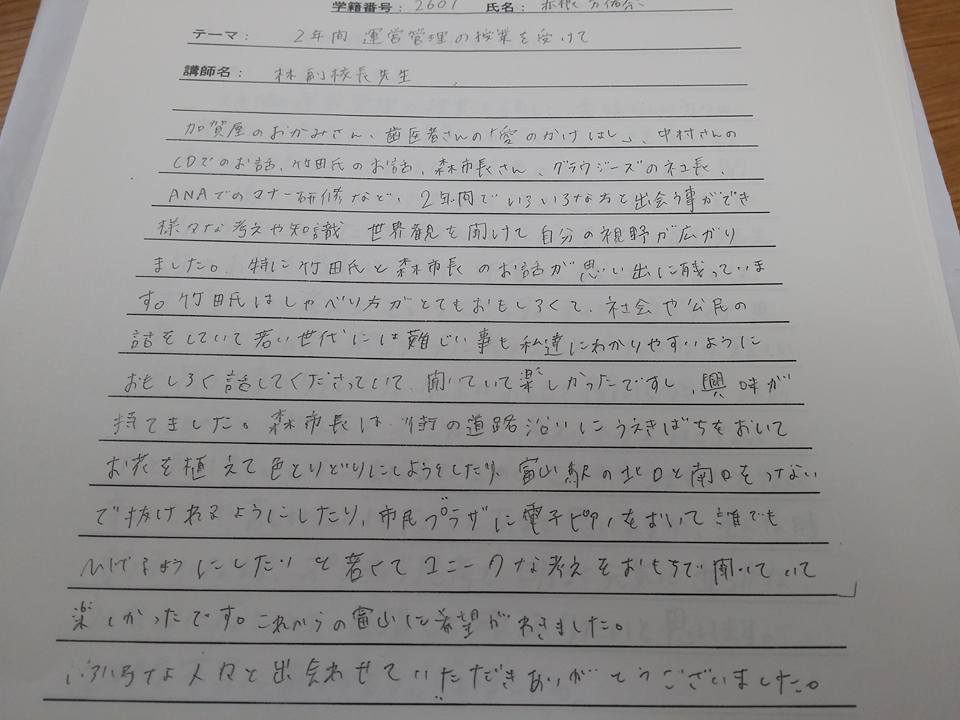 学籍番号: 2601 氏名:
テーマ: 2年間 運営管理の授業を受けて
講師名: 林副校長先生
加賀屋のおかみさん、歯医者さんの「愛のかけはし」、中村さんの
CDでのお話、竹田氏のお話、森市長さん、グラウジーズのネコ長、
ANAでのマナー研修など、2年間でいろいろな方と出会う事ができ
様々な考えや知識 世界観を聞けて自分の視野が広がり
ました。特に竹田氏と森市長のお話が思い出に残っていま
す。竹田氏はしゃべり方がとてもおもしろくて、社会や公民の
話をしていて若い世代には難しい事も私達にわかりやすいように
おもしろく話してくださっていて、聞いていて楽しかったですし、興味が
持てました。森市長は 街の道路沿いにうえきばちをおいて
お花を植えて色とりどりにしようとしたり、富山駅の北口と南口をつない
で抜けれるようにしたり、市民プラザに電子ピアノをおいて誰でも
ひけるようにしたいと若くてユニークな考えをおもちで聞いていて
楽しかったです。これからの富山に希望がわきました。
いろいろな人々と出会わせていただきありがとうございました。